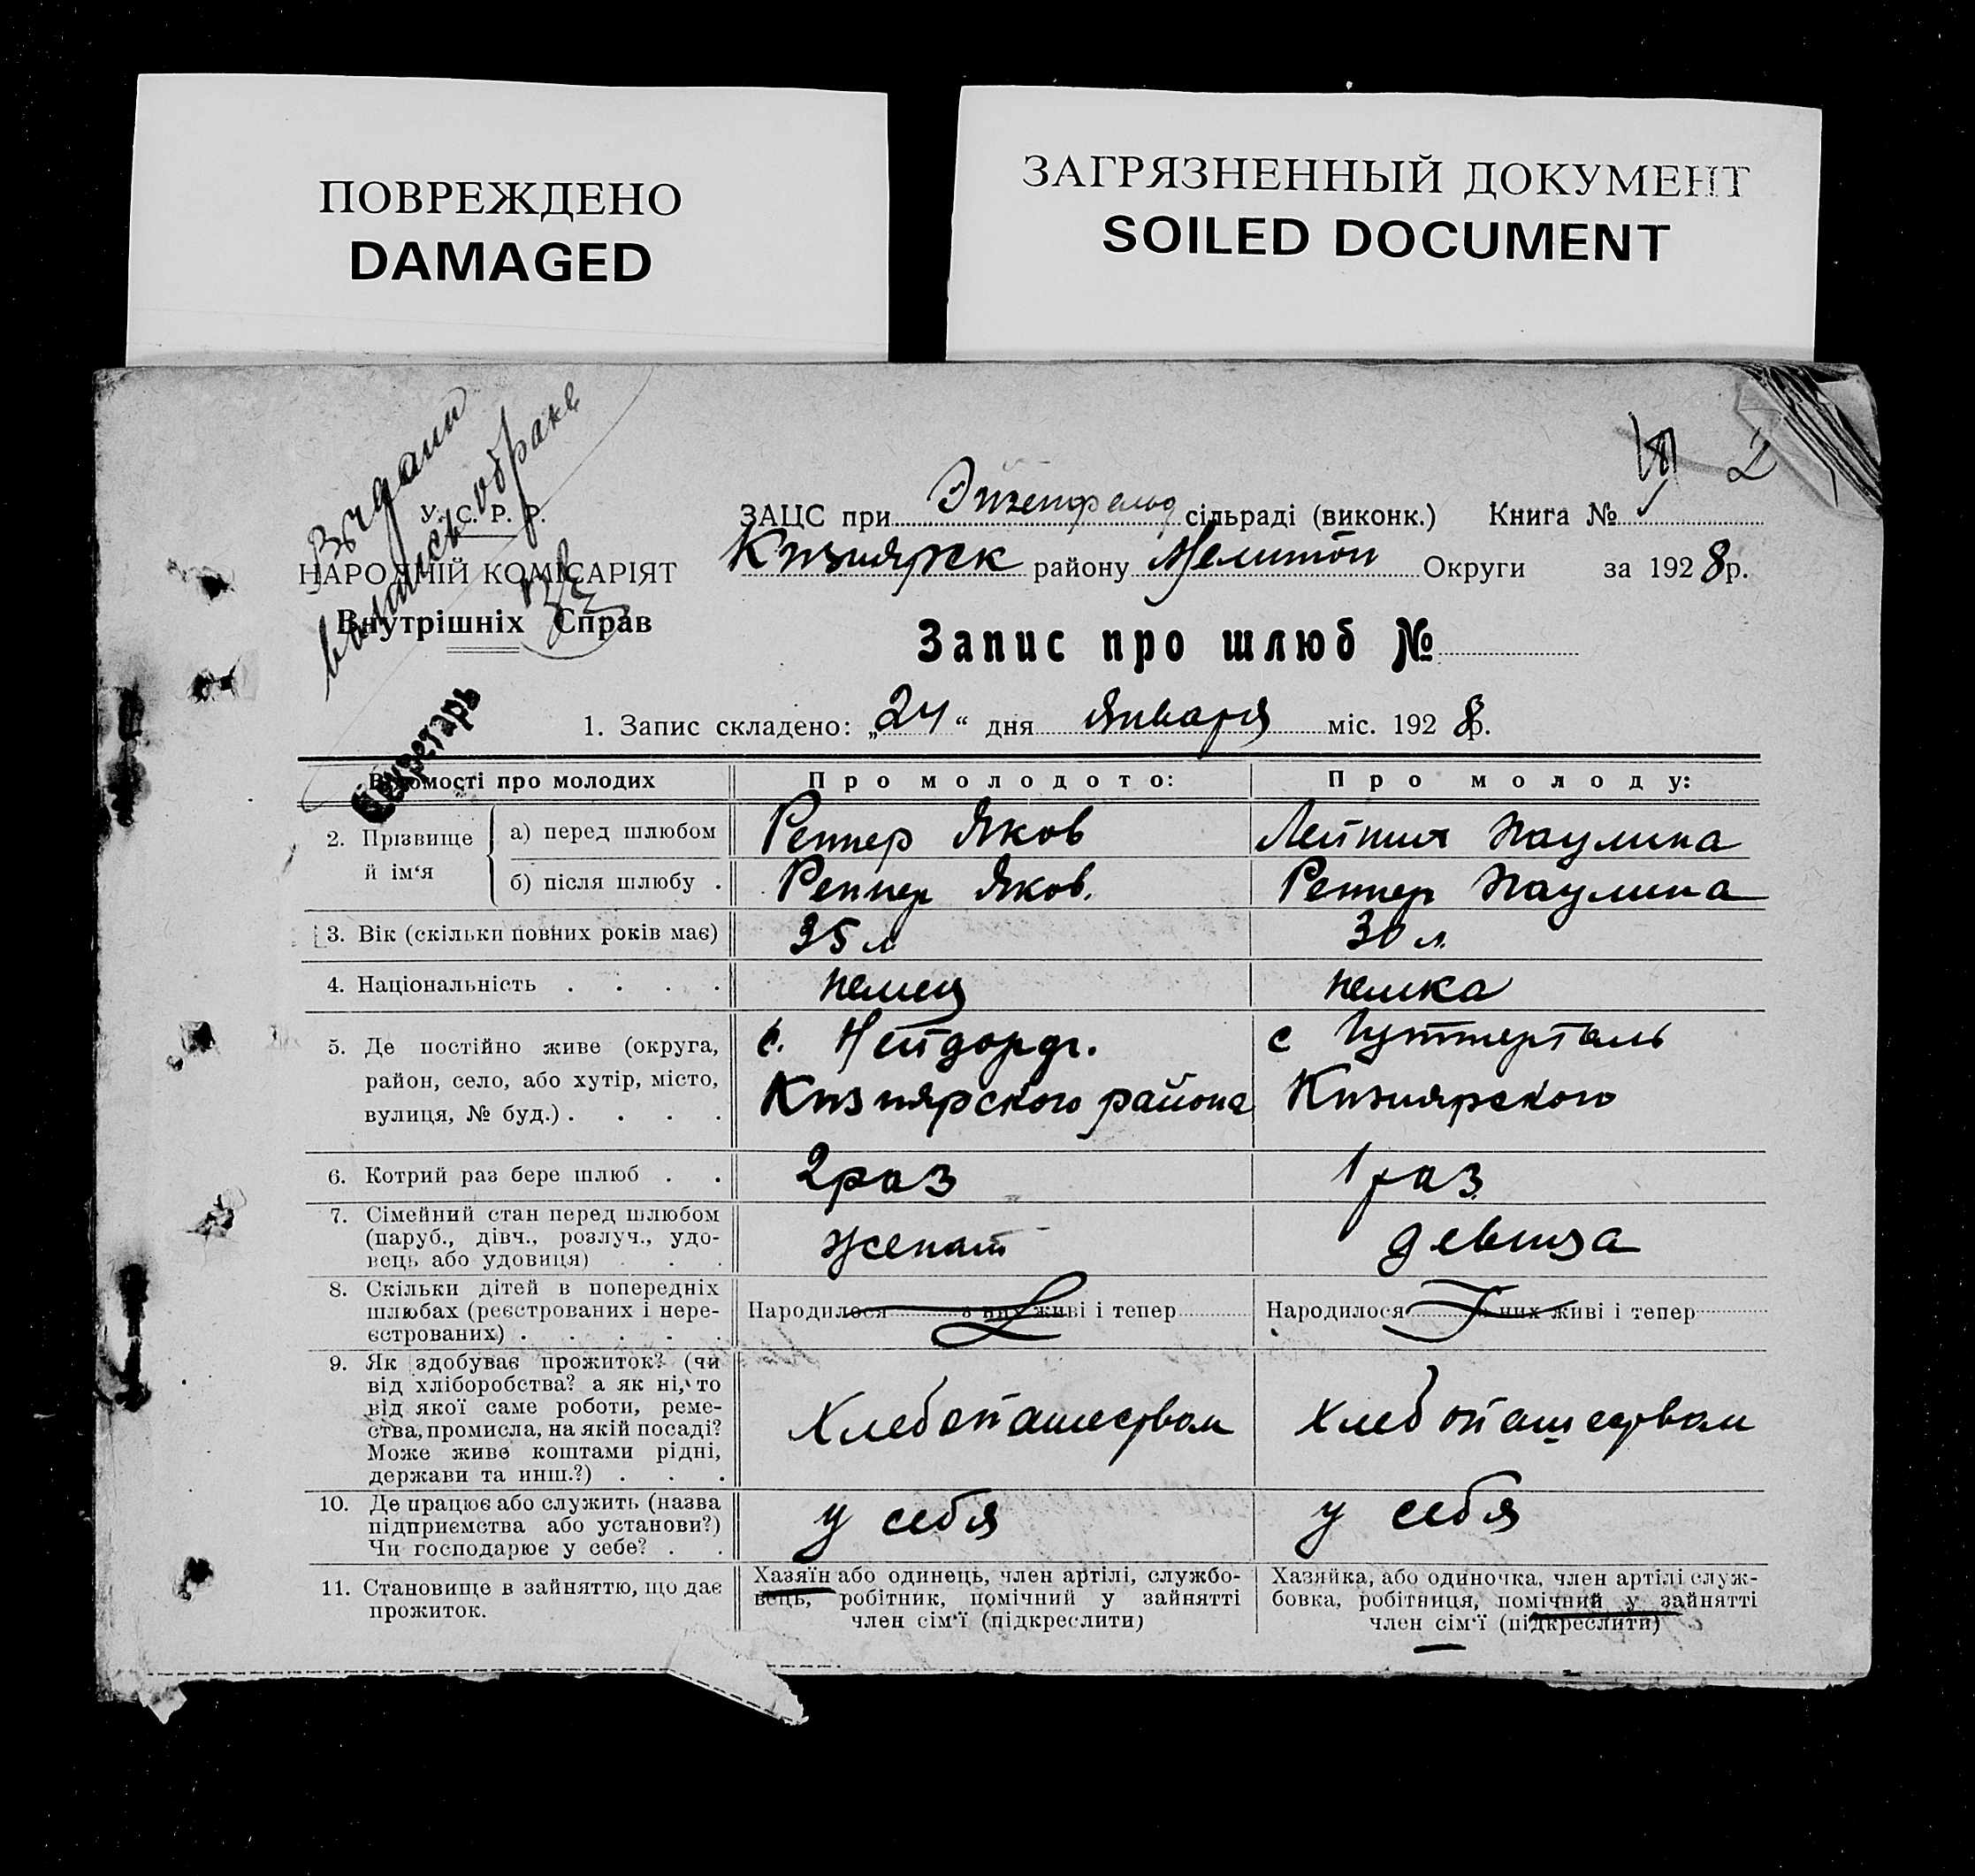 ПОВРЕЖДЕНО
DAMAGED
ЗАГРЯЗНЕННЫЙ ДОКУМЕНТ
SOILED DOCUMENT
2
Выдани
о браке
Секретарь
У. С. Р. Р.
НАРОДНІЙ КОМІСАРІЯТ
Внутрішніх Справ
ЗАЦС при Эйгенфельд сільраді (виконк.) Книга №
Кизиярск району Мелитоп Округи за 1928 р.
Запис про шлюб №
1. Запис складено: „24“ дня Января міс. 1928 р.
Відомості про молодих Про молодого: Про молоду:
2. Прізвище й ім‘я
а) перед шлюбом Реппер Яков Паулина
б) після шлюбу . Реппер Яков. Реппер Паулина
3. Вік (скільки повних років має) 35 л 30 л.
4. Національність . . . . немец немка
5. Де постійно живе (округа, с. Нейдорф. с
район, село, або хутір, місто, Кизиярского района Кизиярского
вулиця, № буд.) . . . .
6. Котрий раз бере шлюб . . 2 раз 1 раз
7. Сімейний стан перед шлюбом
(паруб., дівч., розлуч., удо-
вець або удовиця) . . . женат девица
8. Скільки дітей в попередніх
шлюбах (реєстрованих і нере- Народилося з них живі і тепер Народилося з них живі і тепер
єстрованих) . . . . .
9. Як здобуває прожиток? (чи
від хліборобства? а як ні, то
від якої саме роботи, реме-
ства, промисла, на якій посаді? Хлебопашеством Хлебопашеством
Може живе коштами рідні,
держави та инш.?) . . .
10. Де працює або служить (назва
підприємства або установи?) у себя у себя
Чи господарює у себе? . .
11. Становище в зайняттю, що дає
прожиток.
Хазяїн або одинець, член артілі, службо-
вець, робітник, помічний у зайнятті
член сім‘ї (підкреслити)
Хазяйка, або одиночка, член артілі служ-
бовка, робітниця, помічний у зайнятті
член сім‘ї (підкреслити)